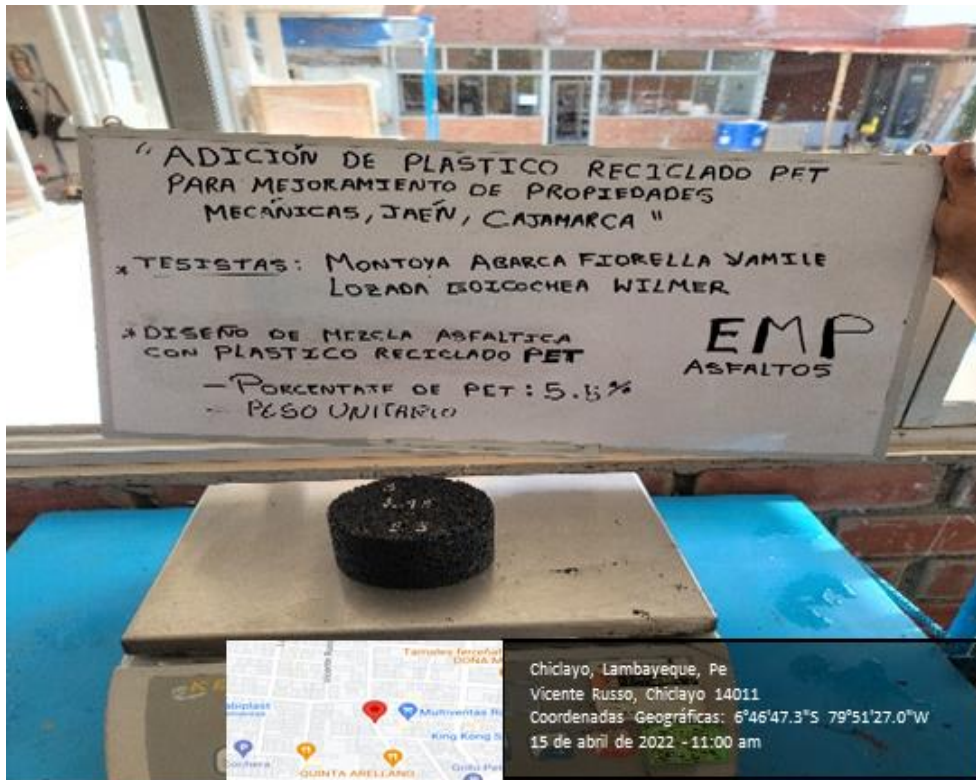 "ADICIÓN DE PLÁSTICO RECICLADO PET
PARA MEJORAMIENTO DE PROPIEDADES
MECÁNICAS, JAÉN, CAJAMARCA"
* TESISTAS: MONTOYA ABARCA FIORELLA YAMILE
LOZADA GOICOCHEA WILMER
* DISEÑO DE MEZCLA ASFALTICA
CON PLASTICO RECICLADO PET
- PORCENTATE DE PET: 5.5%
- PESO UNITARIO
EMP
ASFALTOS
Vicente Russo
Tamales ferreñaf
DOÑA M
abiplast
Multiventas R
King Kong S
Cochera
QUINTA ARELLANO
Grifo Pet
Chiclayo, Lambayeque, Pe
Vicente Russo, Chiclayo 14011
Coordenadas Geográficas: 6°46'47.3"S 79°51'27.0"W
15 de abril de 2022 - 11:00 am